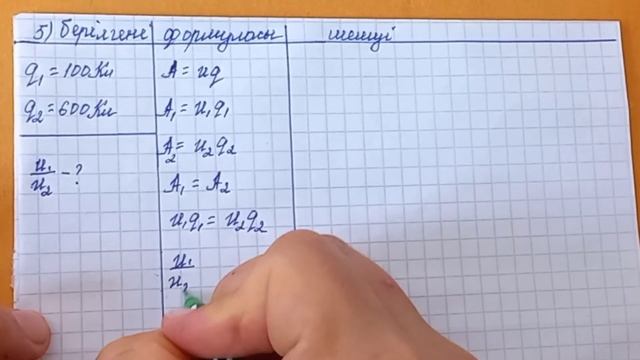 5) берілгене формуласы шешуі
q₁ = 100 Кл
q₂ = 600 Кл
u₁/u₂ - ?
A = uq
A₁ = u₁q₁
A₂ = u₂q₂
A₁ = A₂
u₁q₁ = u₂q₂
u₁/u₂